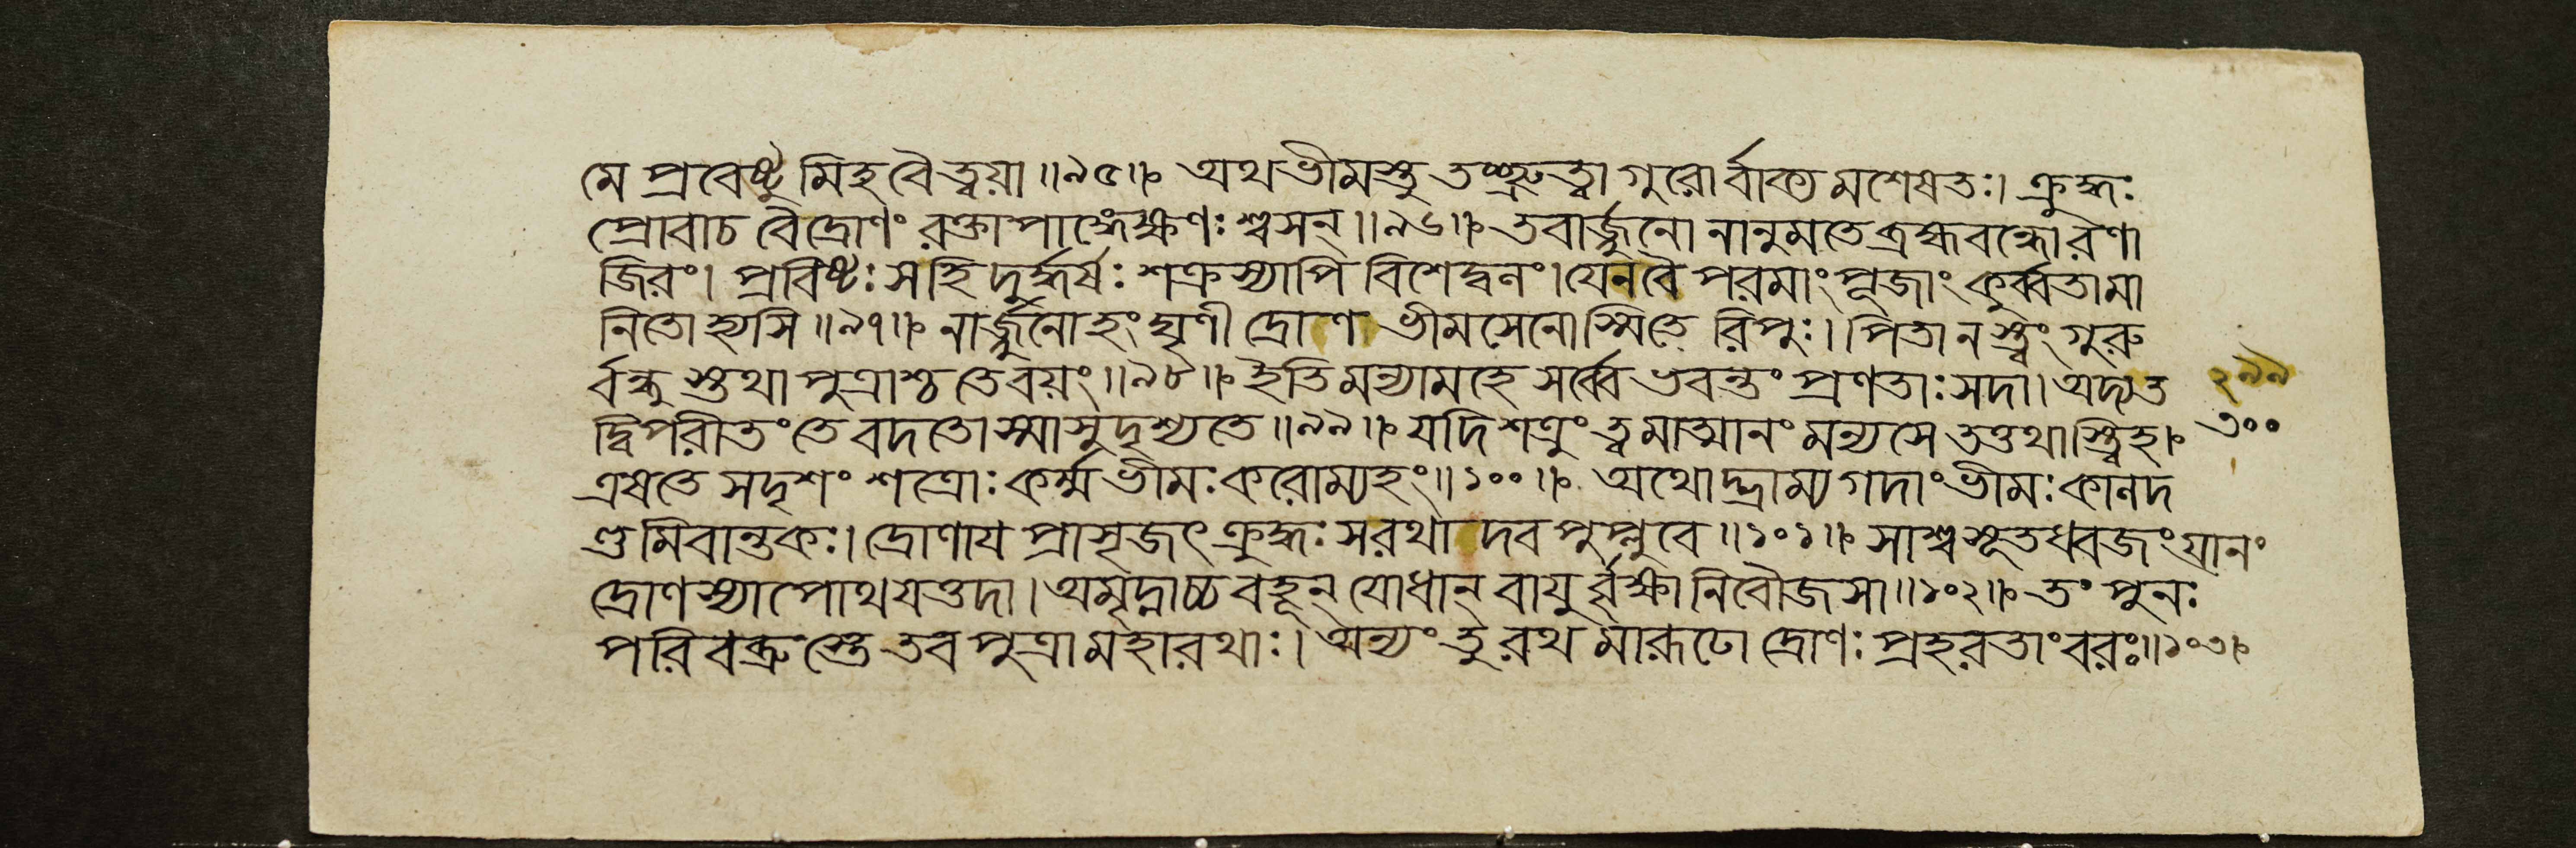 মে প্রবেষ্টুমিহ বৈ ত্বয়া॥৯৫॥ অথ ভীমস্তু তচ্ছ্রুত্বা গুরোর্ব্বাক্যমশেষতঃ। ক্রুদ্ধঃ
প্রোবাচ বৈ দ্রোণং রক্তাপাঙ্গেক্ষণঃ শ্বসন্॥৯৬॥ তবার্জ্জুনো নানুমতে ব্রহ্মবন্ধো রণা
জিরং। প্রবিষ্টঃ স হি দুর্দ্ধর্ষঃ শক্রস্যাপি বিশেদ্বলং। যেন বৈ পরমাং পূজাং কুর্ব্বতা মা
নিতো হ্যসি॥৯৭॥ নার্জ্জুনোহং ঘৃণী দ্রোণ ভীমসেনোস্মি তে রিপুঃ। পিতা নস্ত্বং গুরু
র্বন্ধুস্তথা পুত্রাশ্চ তে বয়ং॥৯৮॥ ইতি মন্যামহে সর্ব্বে ভবন্তং প্রণতাঃ সদা। অদ্য ত
দ্বিপরীতং তে বদতোস্মাসু দৃশ্যতে॥৯৯॥ যদি শত্রুং ত্বমাত্মানং মন্যসে তত্তথাস্ত্বিহ।
এষ তে সদৃশং শত্রোঃ কর্ম্ম ভীমঃ করোম্যহং॥১০০॥ অথোদ্ভ্রাম্য গদাং ভীমঃ কালদ
ণ্ডমিবান্তকঃ। দ্রোণায প্রাসৃজৎ ক্রুদ্ধঃ স রথাদবপুপ্লুবে॥১০১॥ সাশ্বসূতধ্বজং যানং
দ্রোণস্যাপোথযত্তদা। অমৃদ্নাচ্চ বহূন্ যোধান্ বাযুর্বৃক্ষানিবৌজসা॥১০২॥ তং পুনঃ
পরিবব্রুস্তে তব পুত্রা মহারথাঃ। অন্যং তু রথমারূঢো দ্রোণঃ প্রহরতাং বরঃ॥১০৩॥
২৯৯
৩০০